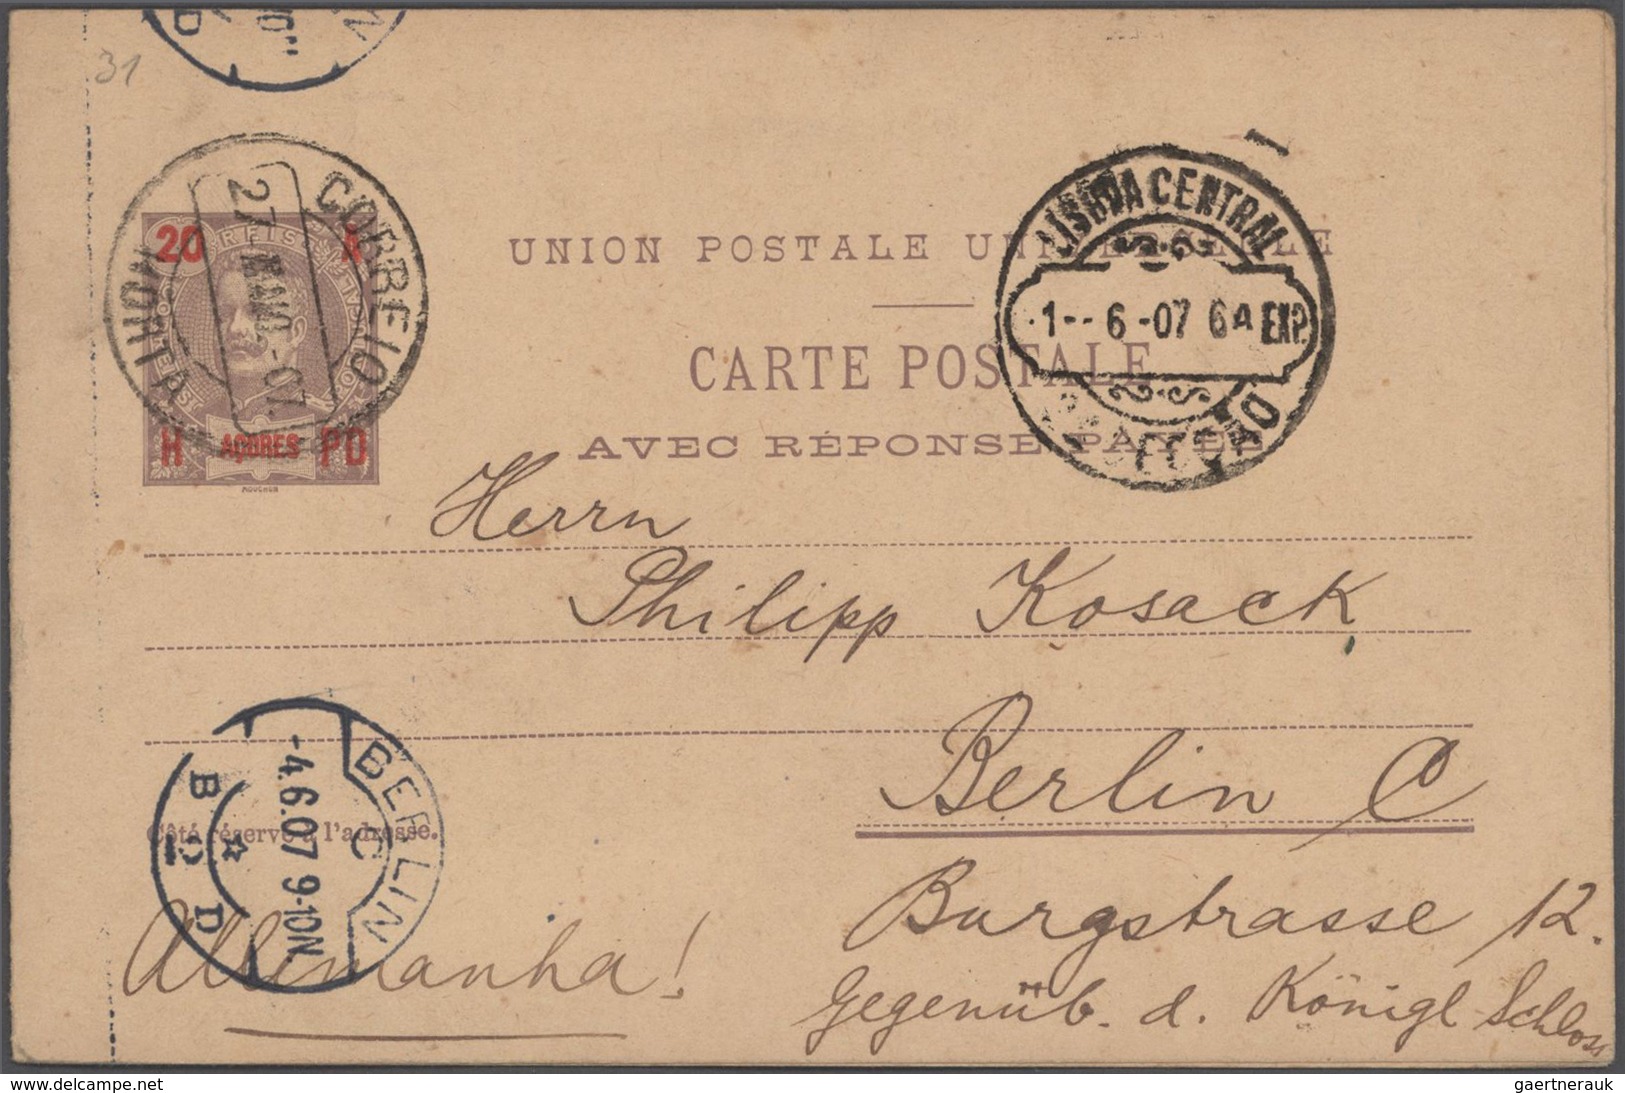 31
CORREIO
27-MAIO-07.
HORTA
20 REIS A
H AÇORES PD
MOUCHON
UNION POSTALE UNIVERSELLE
CARTE POSTALE
AVEC RÉPONSE PAYÉE
LISBOA CENTRAL
1-- 6 -07 6A EXP.
2.S
Herrn
Philipp Kosack
Berlin C
Burgstrasse 12.
Gegenüb. d. Königl Schloss
Côté réservé à l'adresse.
BERLIN
C
-4.6.07 9-10N.
B D
Allemanha!
gaertnerauk